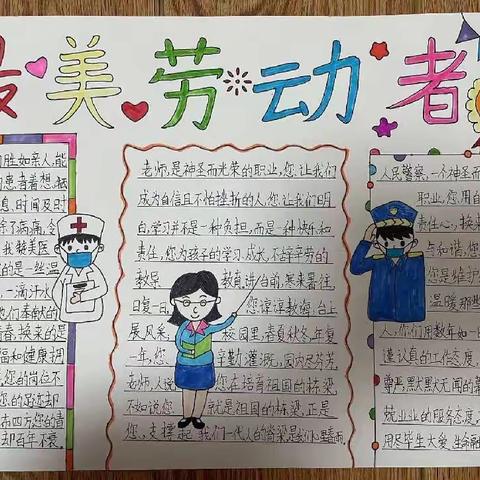 最美劳动者
胜如亲人,能
患者着想,抵
息,时间及时
除了病痛,令
我赞美医
的是一丝温
一滴汗水
他们奉献的
青春,换来的是
福和健康,拥
您的岗位不
您的足迹却
四方,您的青
却百年不衰。
老师,是神圣而光荣的职业,您,让我们
成为自信且不怕挫折的人,您,让我们明
白,学习并不是一种负担,而是一种快乐和
责任,您为孩子的学习,成长,不辞辛劳的
教导 教育讲台前,寒来暑往,
日复一日, 您谆谆教诲;台上
展风采, 校园里,春夏秋冬,年复
一年,您 辛勤灌溉,园内尽芬芳,
老师,人说 您在培育祖国的栋梁,
不如说您 就是祖国的栋梁,正是
您,支撑起 我们一代人的脊梁是我们心里春雨,
人民警察,一个神圣而
职业,您用自
责任心,换来
点和谐,您
您是维护
温暖那些
人,你们用数年如一
谨认真的工作态度,
尊严,默默无闻的
就业业的服务态度,
用尽毕生大爱,生命融